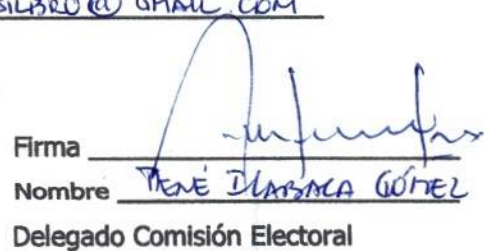 @ GMAIL.COM
Firma
Nombre RENÉ ILABACA GÓMEZ
Delegado Comisión Electoral